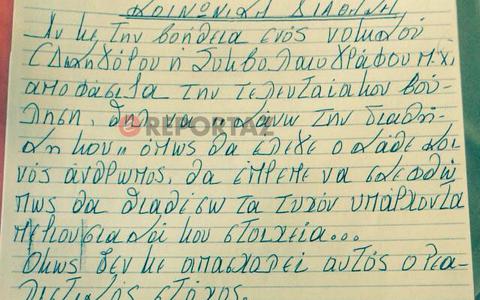 ΚΟΙΝΩΝΙΚΗ ΔΙΑΘΗΚΗ
Αν με την βοήθεια ενός νομικού
(Δικηγόρου ή Συμβολαιογράφου π.χ.)
αποφάσιζα την τελευταία μου βού-
ληση, δηλ. να "κάνω την διαθή-
κη μου" όπως θα έλεγε ο κάθε κοι-
νός άνθρωπος, θα έπρεπε να σκεφθώ
πως θα διαθέσω τα τυχόν υπάρχοντα
περιουσιακά μου στοιχεία...
Όμως δεν με απασχολεί αυτός ο ρεα-
λιστικός στόχος.
REPORTAZ